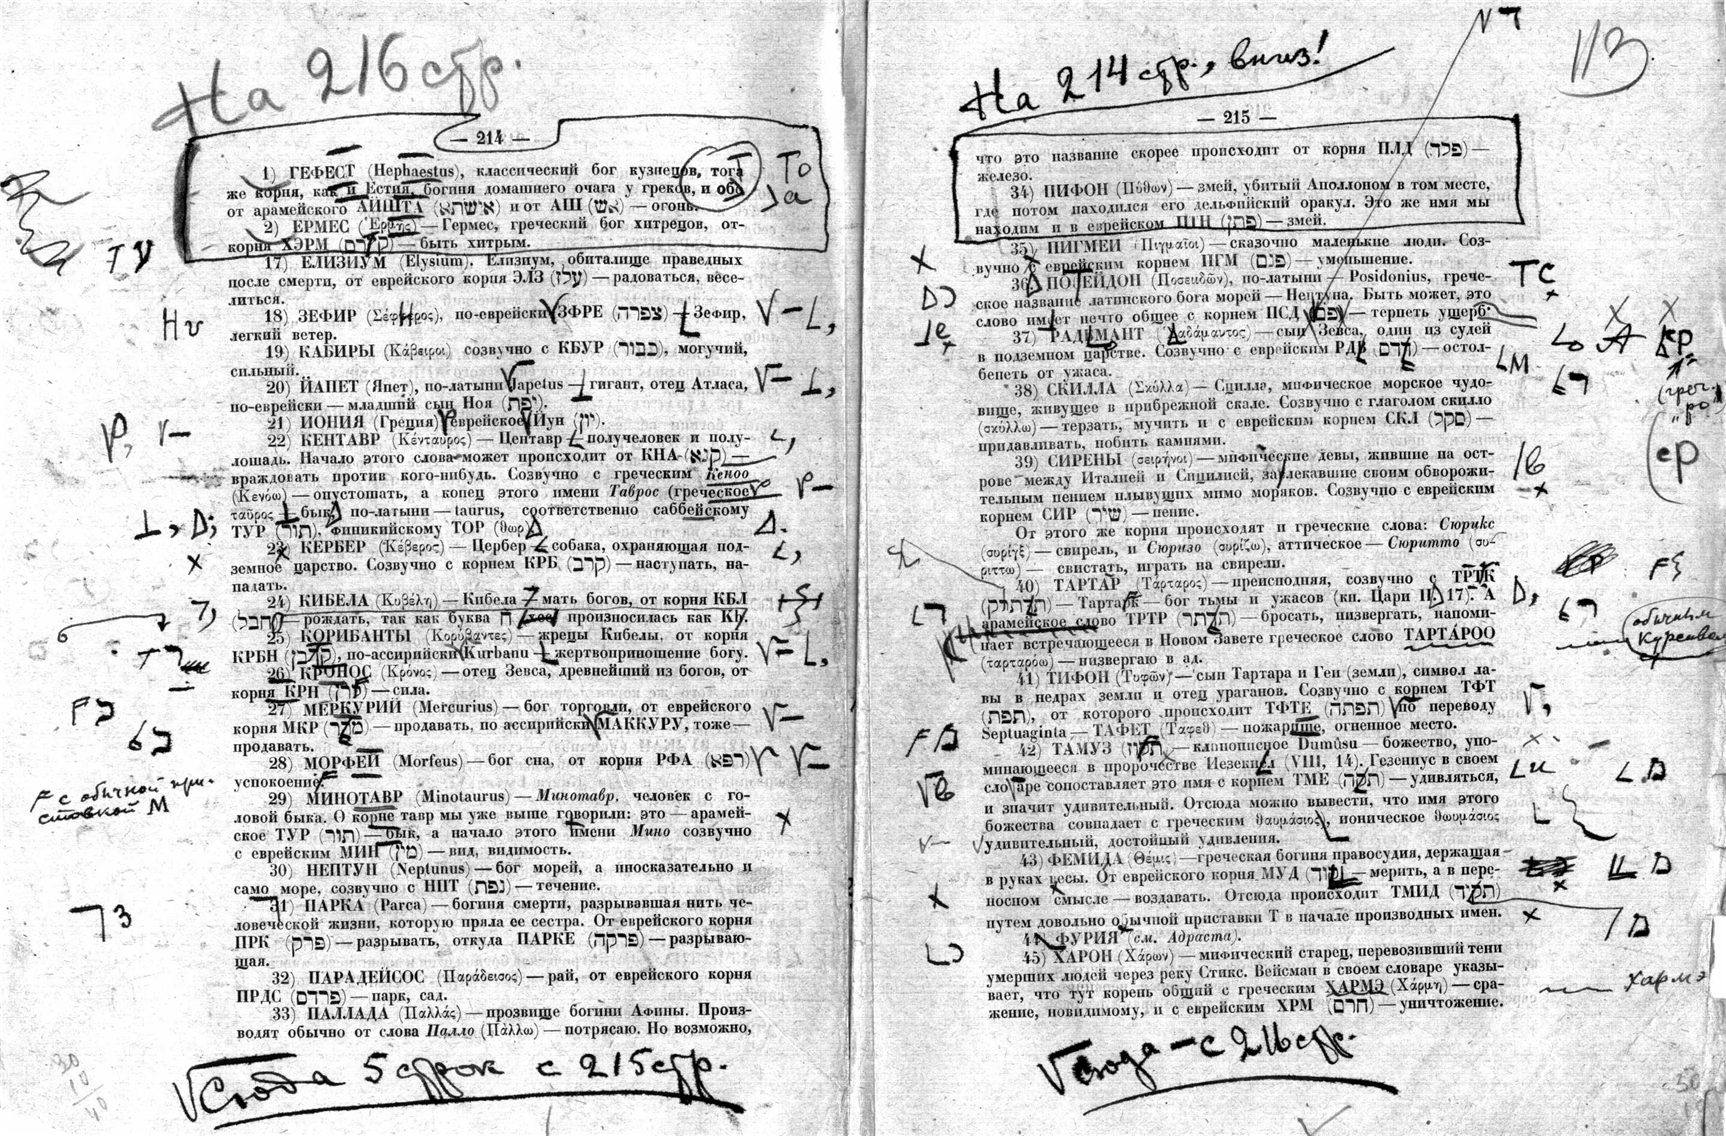 На 216 стр.
— 214 —
1) ГЕФЕСТ (Hephaestus), классический бог кузнецов, тога
же корня, как и Естия, богиня домашнего очага у греков, и обо
от арамейского АЙШТА (אישתא) и от АШ (אש) — огонь.
2) ЕРМЕС (Ἑρμης) — Гермес, греческий бог хитрецов, от-
корня ХЭРМ — быть хитрым.
17) ЕЛИЗИУМ (Elysium). Елизиум, обиталище праведных
после смерти, от еврейского корня ЭЛЗ (עלז) — радоваться, весе-
литься.
18) ЗЕФИР, по-еврейски ЗФРЕ (צפרה) Зефир,
легкий ветер.
19) КАБИРЫ (Κάβειροι) созвучно с КБУР (כבור), могучий,
сильный.
20) ЙАПЕТ (Япет), по-латыни Japetus — гигант, отец Атласа,
по-еврейски — младший сын Ноя (יפת).
21) ИОНИЯ (Греция) еврейское Йун (יון).
22) КЕНТАВР (Κένταυρος) — Центавр — получеловек и полу-
лошадь. Начало этого слова может происходит от КНА (קנא) —
враждовать против кого-нибудь. Созвучно с греческим Кеноо
(Κενόω) — опустошать, а конец этого имени Таврос (греческое
ταῦρος — бык, по-латыни — taurus, соответственно саббейскому
ТУР (תור), финикийскому ТОР (θωρ)
23) КЕРБЕР (Κέβερος) — Цербер — собака, охраняющая под-
земное царство. Созвучно с корнем КРБ (קרב) — наступать, на-
падать.
24) КИБЕЛА (Κυβέλη) — Кибела — мать богов, от корня КБЛ
(חבל) — рождать, так как буква ח произносилась как Kh.
25) КОРИБАНТЫ (Κορύβαντες) — жрецы Кибелы, от корня
КРБН, по-ассирийски Kurbanu — жертвоприношение богу.
26) КРОНОС (Κρόνος) — отец Зевса, древнейший из богов, от
корня КРН — сила.
27) МЕРКУРИЙ (Mercurius) — бог торговли, от еврейского
корня МКР — продавать, по ассирийски МАККУРУ, тоже —
продавать.
28) МОРФЕЙ (Morfeus) — бог сна, от корня РФА (רפא)
успокоение
29) МИНОТАВР (Minotaurus) — Минотавр, человек с го-
ловой быка. О корне тавр мы уже выше говорили: это — арамей-
ское ТУР (תור) — бык, а начало этого имени Мино созвучно
с еврейским МИН (מין) — вид, видимость.
30) НЕПТУН (Neptunus) — бог морей, а иносказательно и
само море, созвучно с НПТ (נפת) — течение.
31) ПАРКА (Parca) — богиня смерти, разрывавшая нить че-
ловеческой жизни, которую пряла ее сестра. От еврейского корня
ПРК (פרק) — разрывать, откуда ПАРКЕ (פרקה) — разрываю-
щая.
32) ПАРАДЕЙСОС (Παράδεισος) — рай, от еврейского корня
ПРДС (פרדס) — парк, сад.
33) ПАЛЛАДА (Παλλάς) — прозвище богини Афины. Произ-
водят обычно от слова Палло (Πάλλω) — потрясаю. Но возможно,
То
За
с обычной при-
ставкой М
Сюда 5 строк с 215 стр.
На 214 стр., вниз!
113
— 215 —
что это название скорее происходит от корня ПЛД (פלד) —
железо.
34) ПИФОН (Πύθων) — змей, убитый Аполлоном в том месте,
где потом находился его дельфийский оракул. Это же имя мы
находим и в еврейском ПТН (פתן) — змей.
35) ПИГМЕИ (Πιγμαῖοι) — сказочно маленькие люди. Соз-
вучно с еврейским корнем ПГМ (פגם) — уменьшение.
36) ПОЗЕЙДОН (Ποσειδῶν), по-латыни — Posidonius, грече-
ское название латинского бога морей — Нептуна. Быть может, это
слово имеет нечто общее с корнем ПСД — терпеть ущерб.
37) РАДАМАНТ — сын Зевса, один из судей
в подземном царстве. Созвучно с еврейским РДМ — остол-
бенеть от ужаса.
38) СКИЛЛА (Σκύλλα) — Сцилла, мифическое морское чудо-
вище, живущее в прибрежной скале. Созвучно с глаголом скилло
(σκύλλω) — терзать, мучить и с еврейским корнем СКЛ (סקל) —
придавливать, побить камнями.
39) СИРЕНЫ (σειρῆνοι) — мифические девы, жившие на ост-
рове между Италией и Сицилией, завлекавшие своим обворожи-
тельным пением плывущих мимо моряков. Созвучно с еврейским
корнем СИР (שיר) — пение.
От этого же корня происходят и греческие слова: Сюрикс
(συρίγξ) — свирель, и Сюризо (συρίζω), аттическое — Сюритто (συ-
ριττω) — свистать, играть на свирели.
40) ТАРТАР (Τάρταρος) — преисподняя, созвучно с ТРТК
— Тартак — бог тьмы и ужасов (кн. Цари II 17). А
арамейское слово ТРТР — бросать, низвергать, напоми-
нает встречающееся в Новом Завете греческое слово ТАРТАРОО
(ταρταρόω) — низвергаю в ад.
41) ТИФОН (Τυφῶν) — сын Тартара и Геи (земли), символ ла-
вы в недрах земли и отец ураганов. Созвучно с корнем ТФТ
(תפת), от которого происходит ТФТЕ (תפתה) по переводу
Septuaginta — ТАФЕТ (Ταφεθ) — пожарище, огненное место.
42) ТАМУЗ — клинописное Dumûsu — божество, упо-
минающееся в пророчестве Иезекиил (VIII, 14). Гезениус в своем
словаре сопоставляет это имя с корнем ТМЕ — удивляться,
и значит удивительный. Отсюда можно вывести, что имя этого
божества совпадает с греческим θαυμάσιος, ионическое θωυμάσιος
удивительный, достойный удивления.
43) ФЕМИДА (Θέμις) — греческая богиня правосудия, держащая
в руках весы. От еврейского корня МУД — мерить, а в пере-
носном смысле — воздавать. Отсюда происходит ТМИД
путем довольно обычной приставки Т в начале производных имен.
44) ФУРИЯ (см. Адраста).
45) ХАРОН (Χάρων) — мифический старец, перевозивший тени
умерших людей через реку Стикс. Вейсман в своем словаре указы-
вает, что тут корень общий с греческим ХАРМЭ (Χάρμη) — сра-
жение, повидимому, и с еврейским ХРМ (חרם) — уничтожение.
(греч.
"ро")
ср
обычным
курсивом
хармэ
Сюда — с 216 стр.